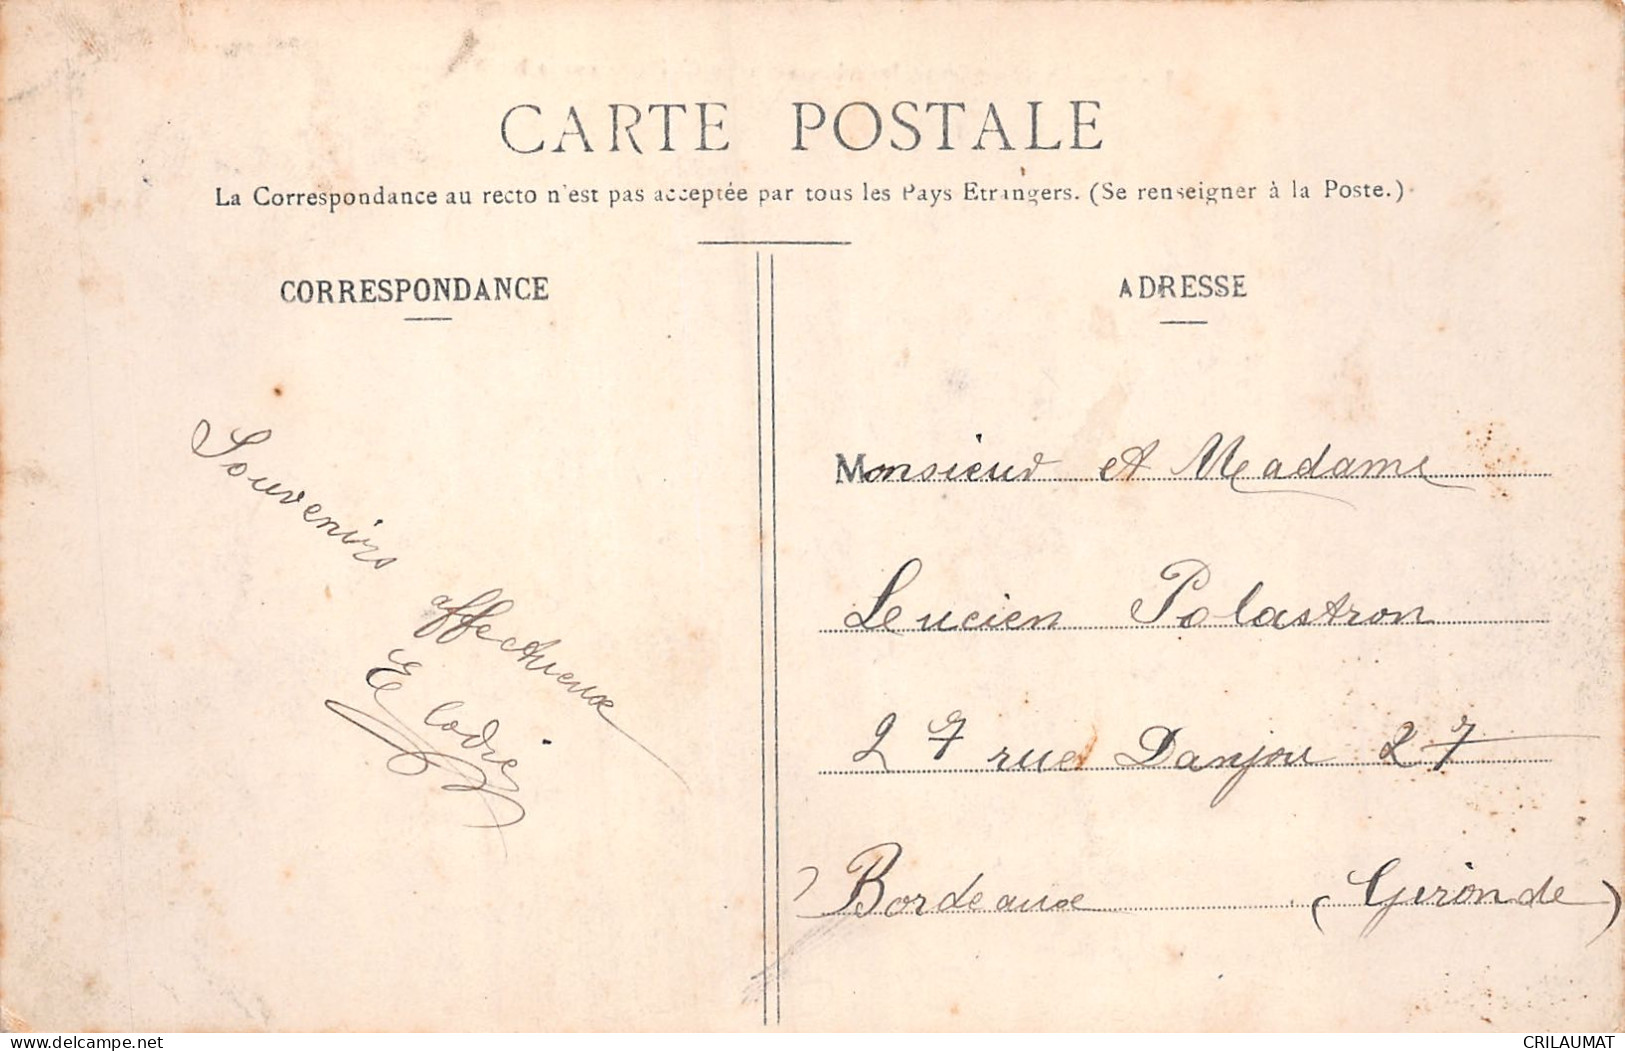 CARTE POSTALE
La Correspondance au recto n'est pas acceptée par tous les Pays Etrangers. (Se renseigner à la Poste.)
CORRESPONDANCE
Souvenirs
affectueux
Elodie
ADRESSE
Monsieur et Madame
Leucien Polastron
27 rue Danjou 27
Bordeaux (Gironde)
delcampe.net
CRILAUMAT